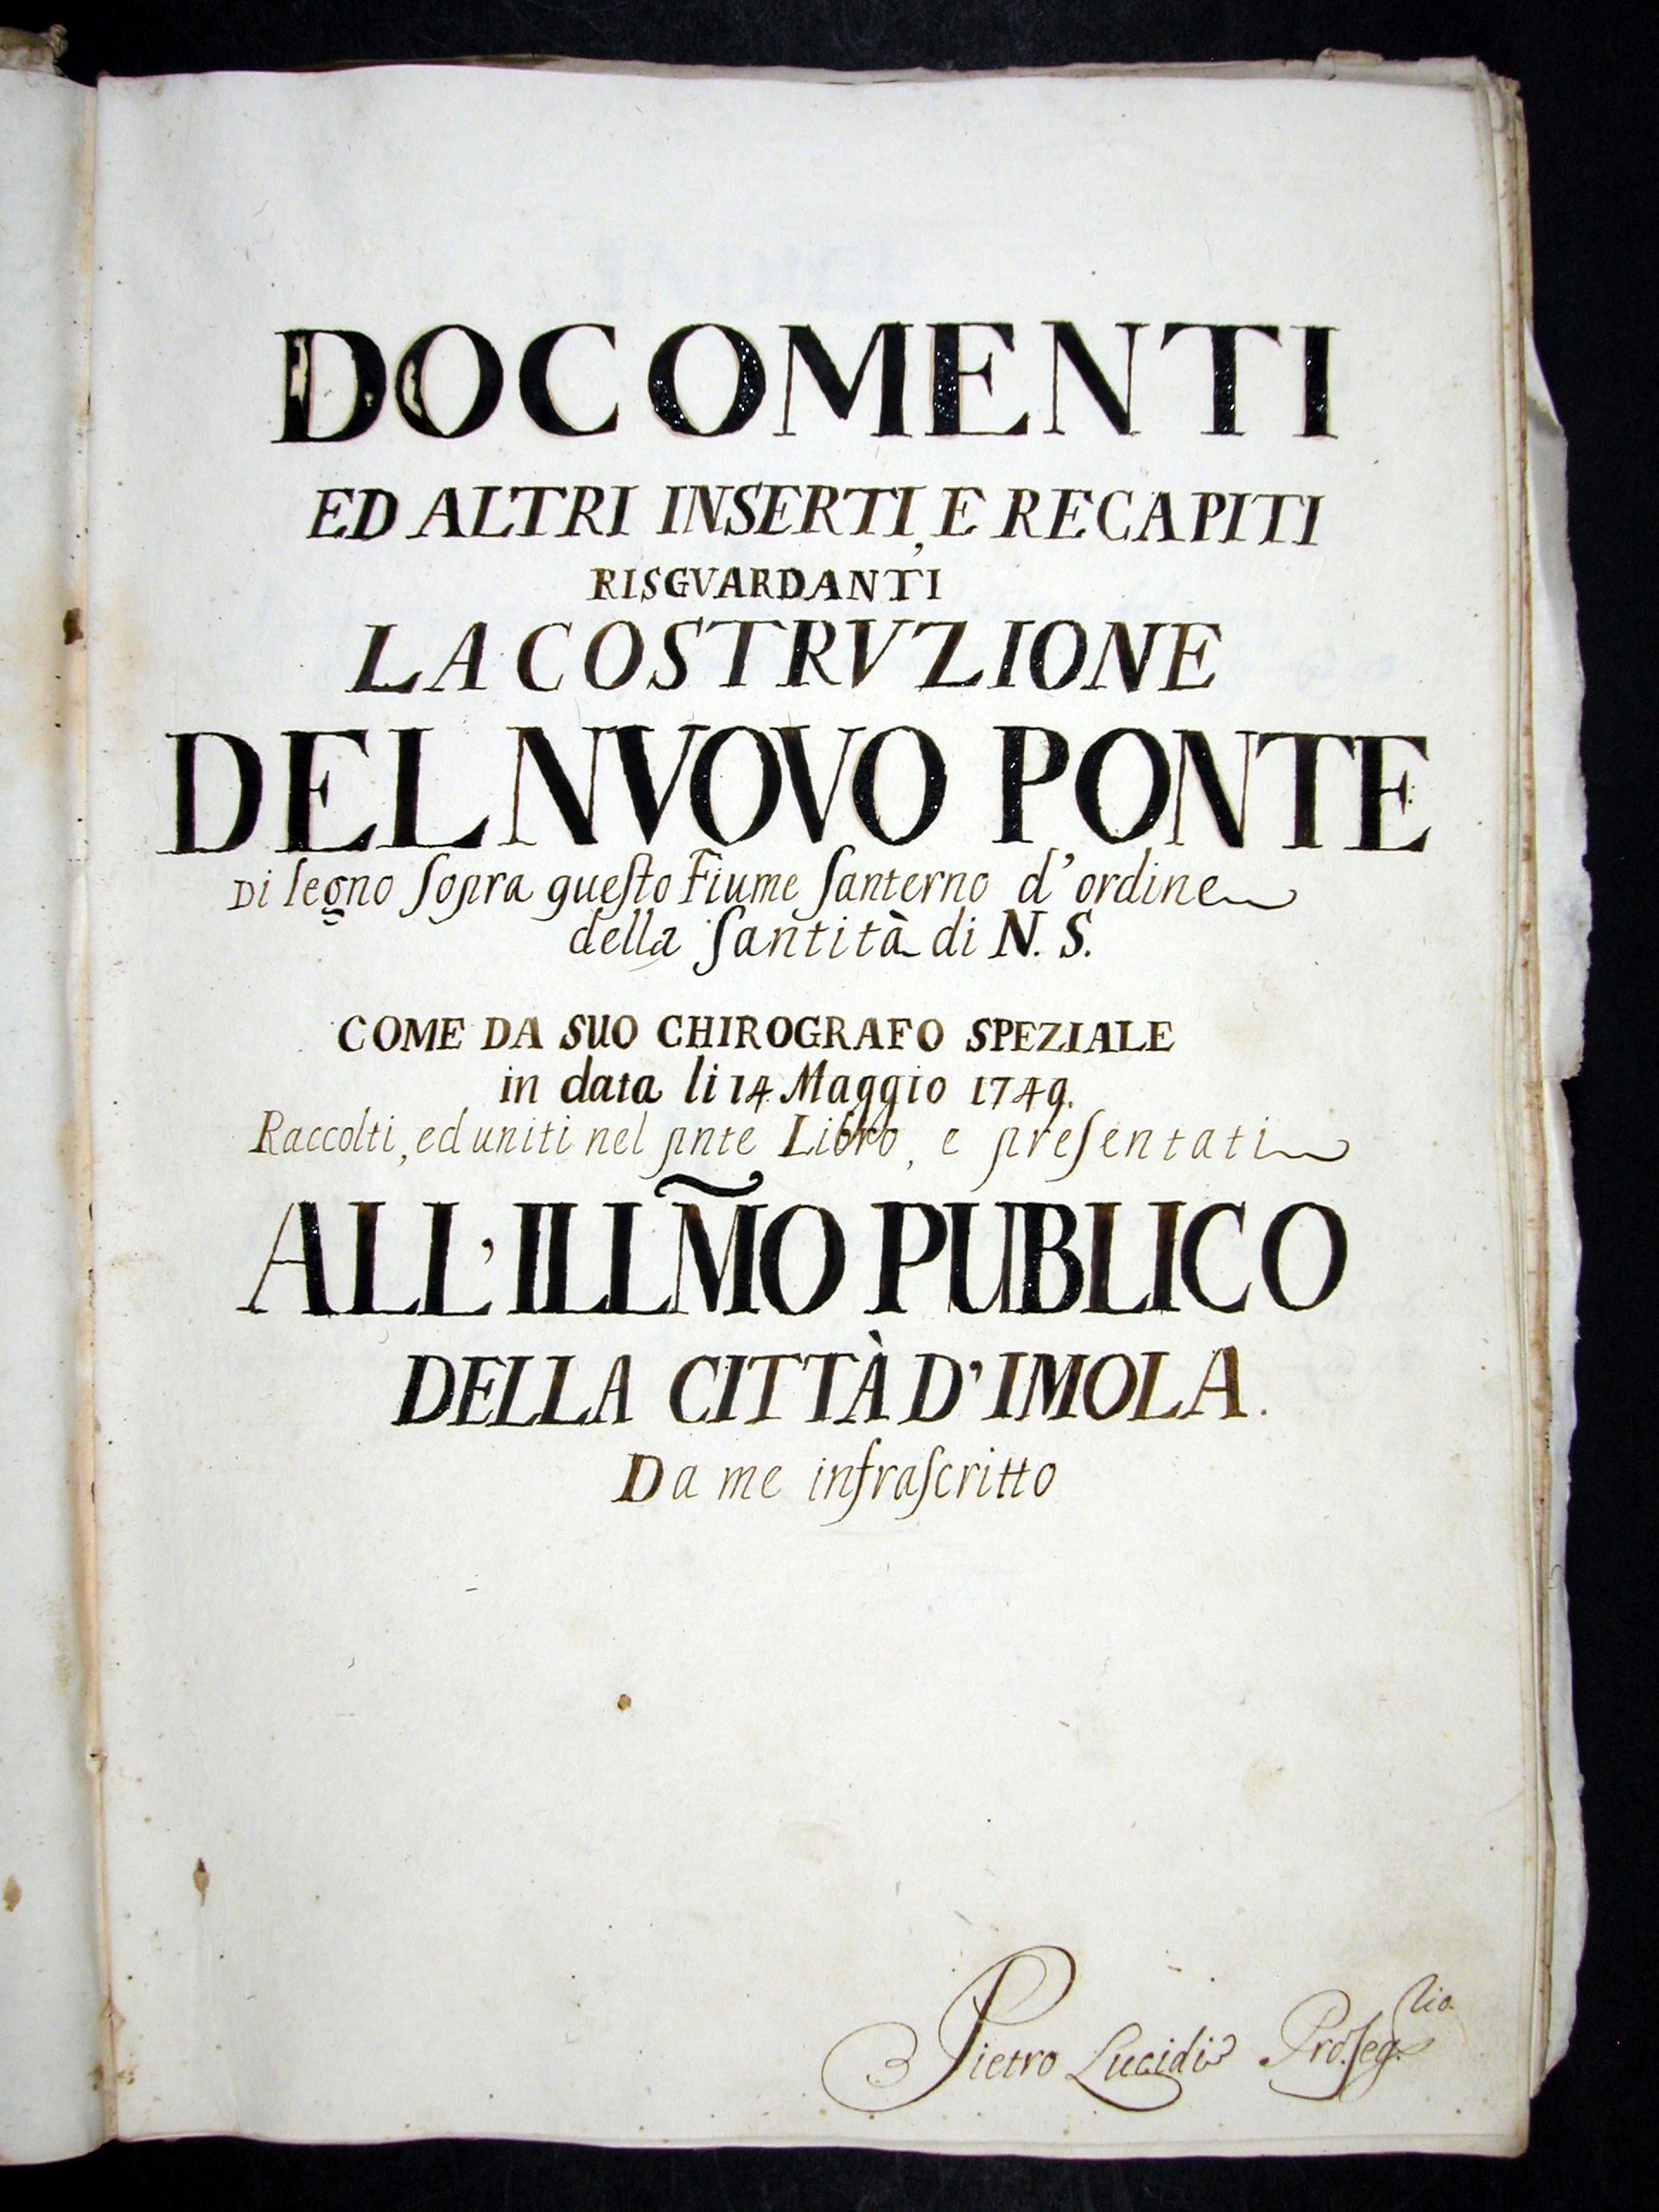 DOCOMENTI
ED ALTRI INSERTI, E RECAPITI
RISGVARDANTI
LA COSTRVZIONE
DEL NVOVO PONTE
Di legno sopra questo Fiume Santerno d'ordine
della Santità di N. S.
COME DA SUO CHIROGRAFO SPEZIALE
in data li 14 Maggio 1749.
Raccolti, ed uniti nel pnte Libro, e presentati
ALL'ILLM̃O PUBLICO
DELLA CITTÀ D'IMOLA.
Da me infrascritto
Pietro Lucidi Pro.Seg.rio